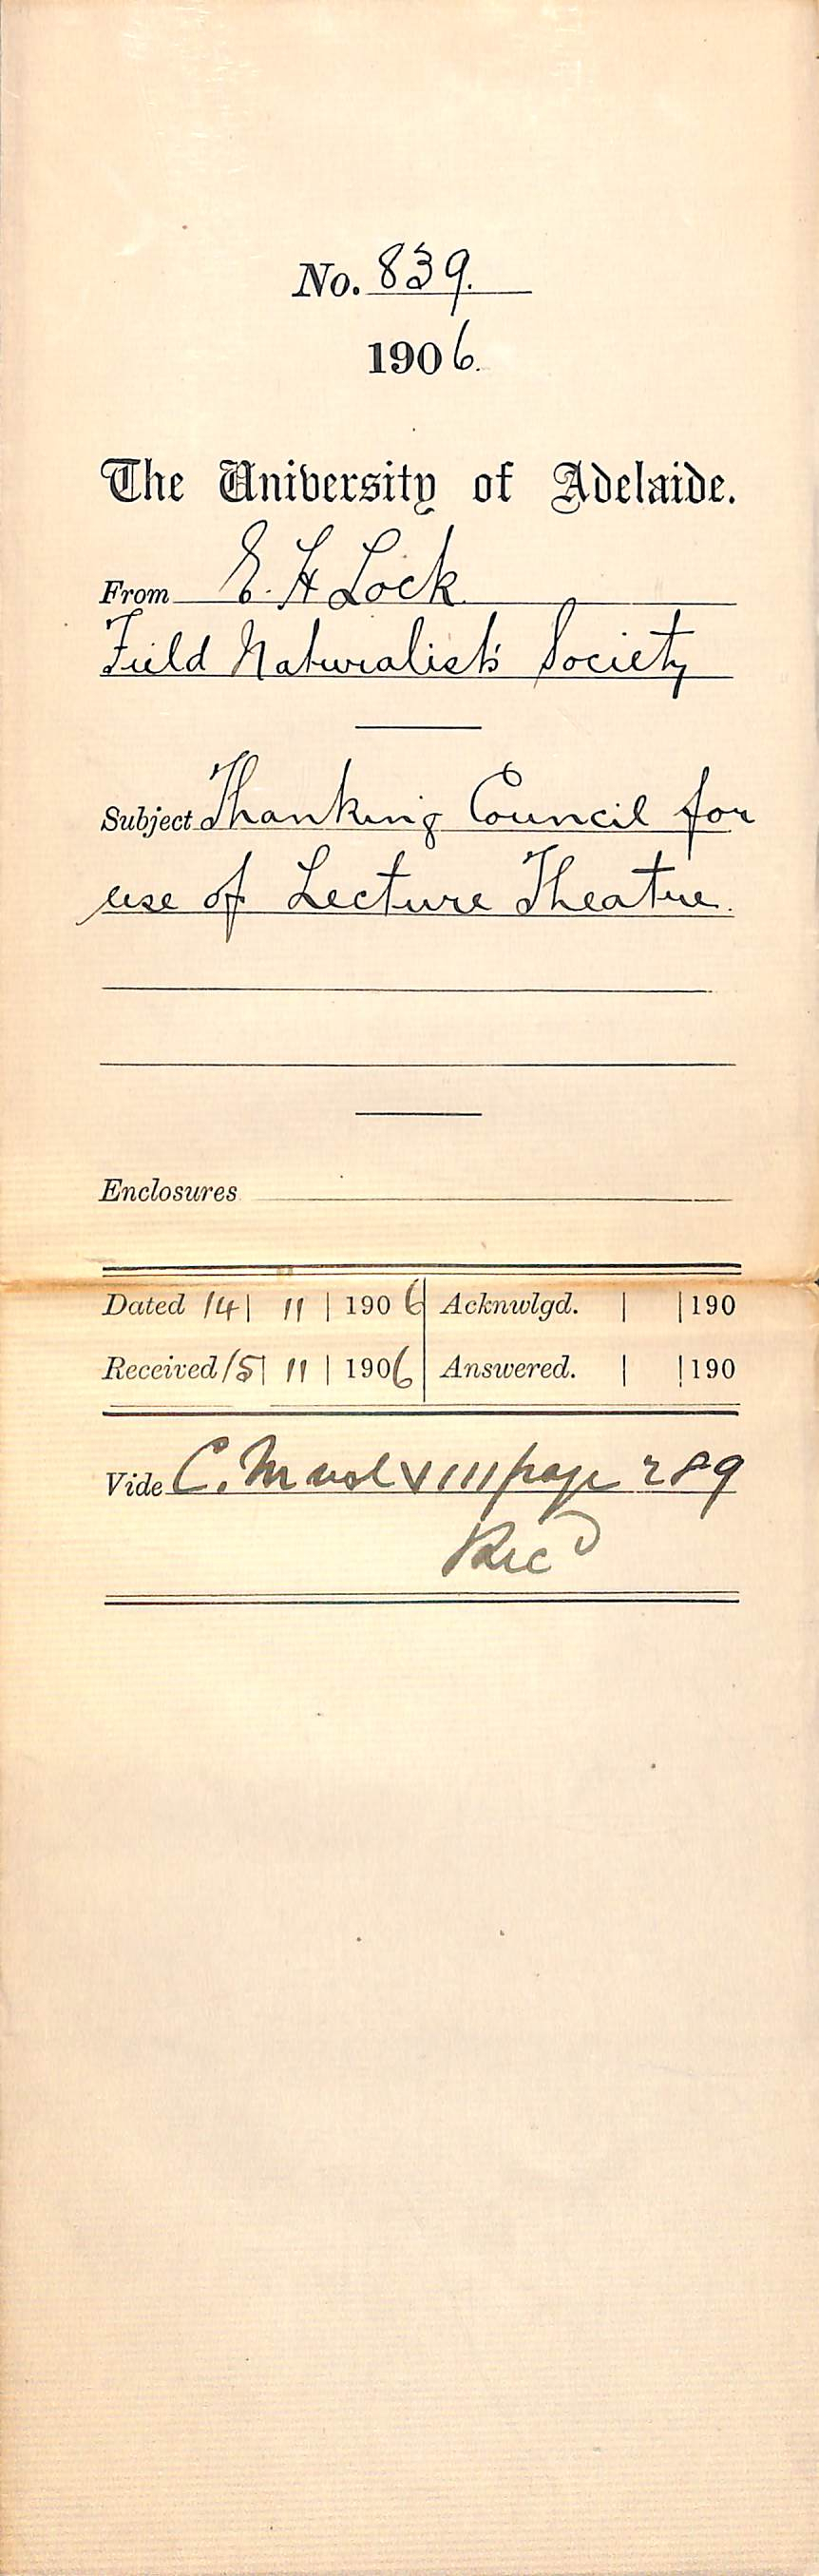 No. 839.
1906.
The University of Adelaide.
From E. H Lock
Field Naturalists' Society
Subject Thanking Council for
use of Lecture Theatre.
Enclosures
Dated 14| 11 | 1906 Acknwlgd. | |190
Received 15| 11 | 1906 Answered. | |190
Vide C. M vol VIII page 289
Recd